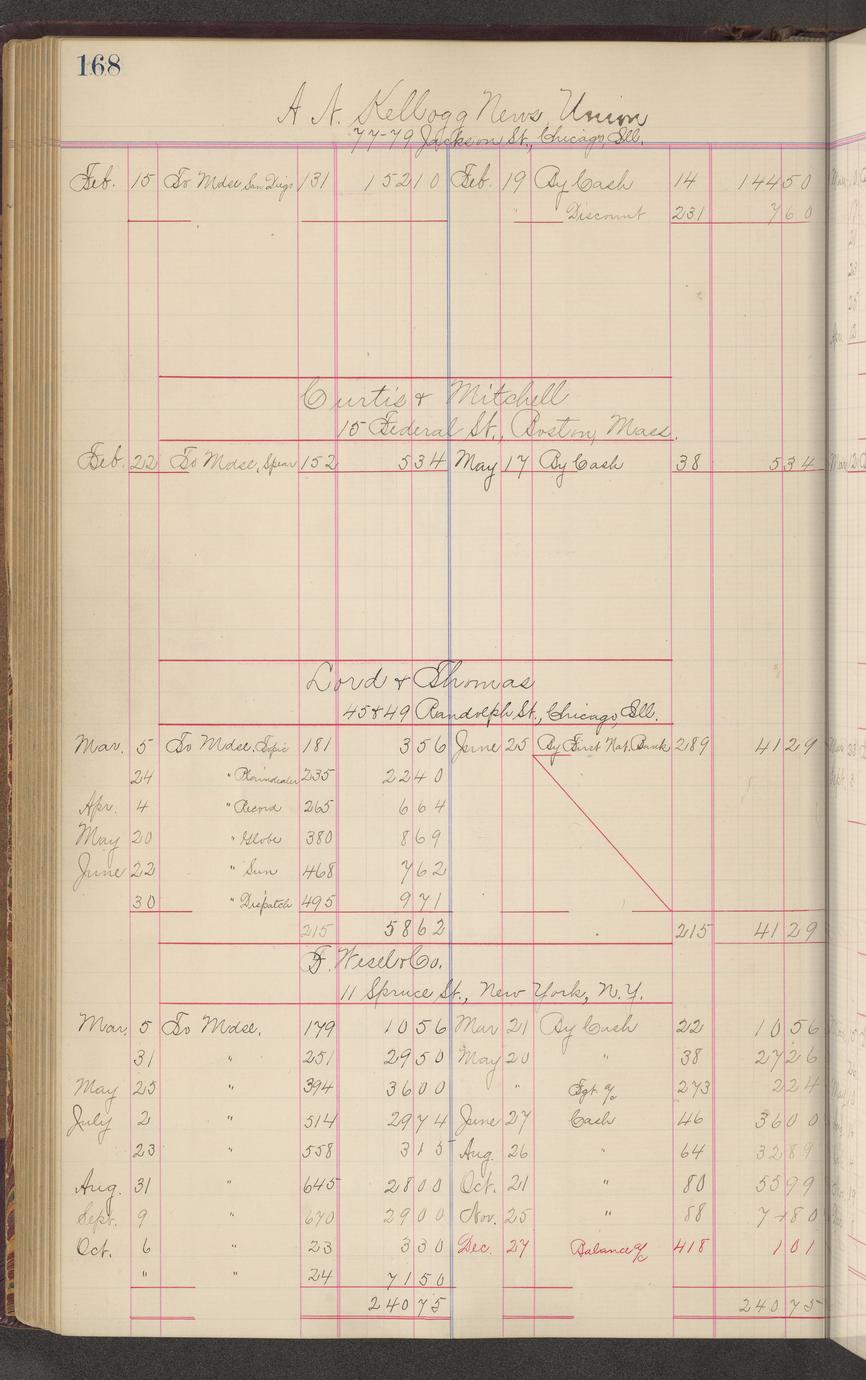 168
A. N. Kellogg News Union
77-79 Jackson St., Chicago, Ills.
Feb. 15 To Mdse San Diego 131 152 10 Feb. 19 By Cash 14 144 50
" Discount 231 7 60
Curtis & Mitchell
15 Federal St., Boston, Mass.
Feb. 22 To Mdse, Spear 152 5 34 May 17 By Cash 38 5 34
Lord & Thomas
45 & 49 Randolph St., Chicago, Ill.
Mar. 5 To Mdse. Topic 181 3 56 June 25 By First Nat. Bank 289 41 29
24 " Plaindealer 235 22 40
Apr. 4 " Record 265 6 64
May 20 " Globe 380 8 69
June 22 " Sun 468 7 62
30 " Dispatch 495 9 71
215 58 62 215 41 29
F. Wesel & Co.
11 Spruce St., New York, N.Y.
Mar. 5 To Mdse. 179 10 56 Mar 21 By Cash 22 10 56
31 " 251 29 50 May 20 " 38 27 26
May 25 " 394 36 00 " Frgt % 273 2 24
July 2 " 514 29 74 June 27 Cash 46 36 00
23 " 558 3 15 Aug. 26 " 64 32 89
Aug. 31 " 645 28 00 Oct. 21 " 80 55 99
Sept. 9 " 670 29 00 Nov. 25 " 88 74 80
Oct. 6 " 23 3 30 Dec. 27 Balance % 418 1 01
" " 24 71 50
240 75 240 75